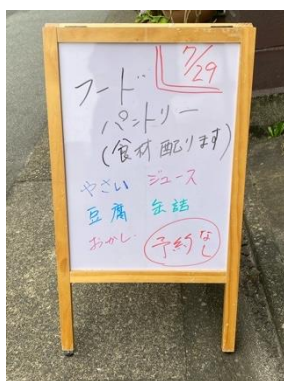 7/29
フード
パントリー
(食材配ります)
やさい ジュース
豆腐 缶詰
おかし 予約なし